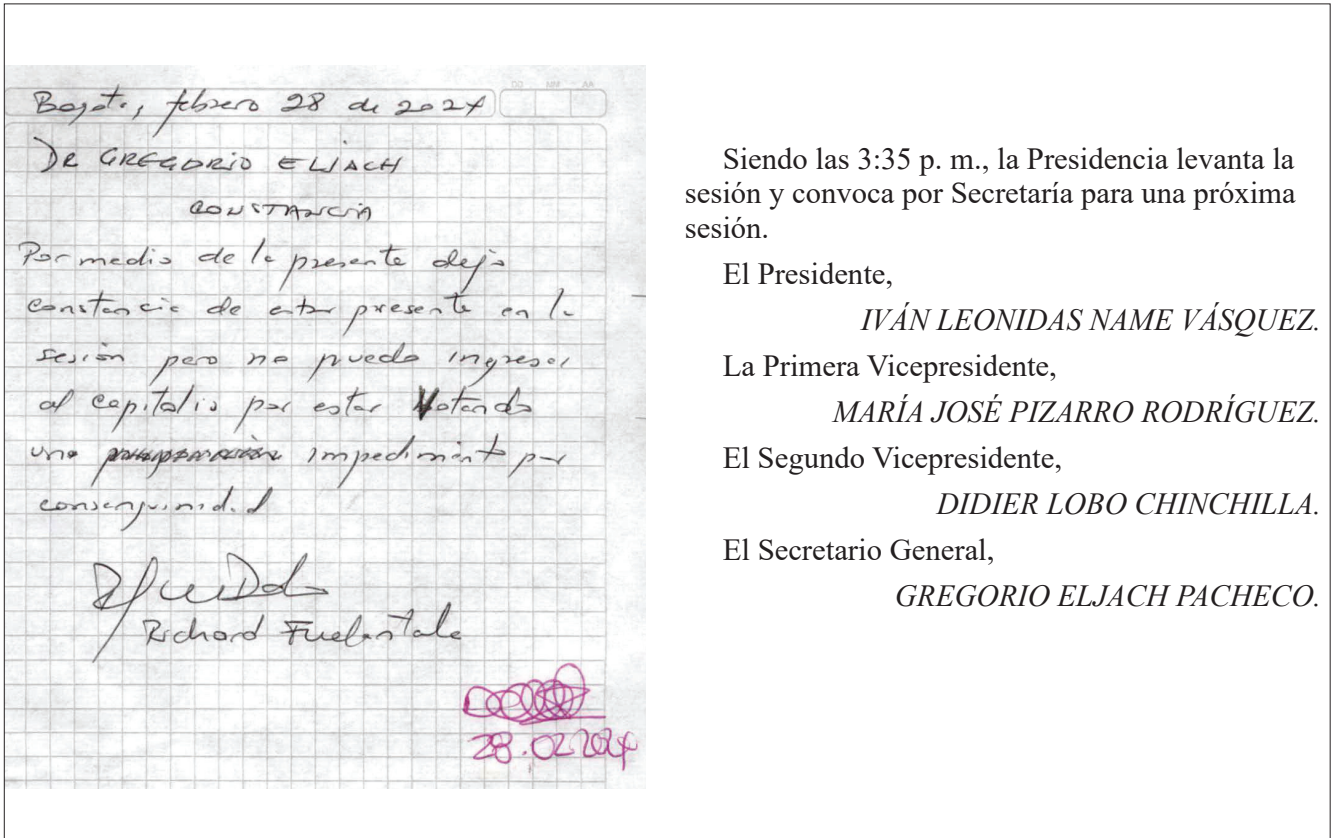 DD MM AA
Bogotá, febrero 28 de 2024
DR GREGORIO ELJACH
CONSTANCIA
Por medio de la presente dejo
constancia de estar presente en la
sesión pero no puedo ingresar
al capitolio por estar Votando
una impedimento por
consanguinidad
Richard Fuelantala
28.02.2024
Siendo las 3:35 p. m., la Presidencia levanta la
sesión y convoca por Secretaría para una próxima
sesión.
El Presidente,
IVÁN LEONIDAS NAME VÁSQUEZ.
La Primera Vicepresidente,
MARÍA JOSÉ PIZARRO RODRÍGUEZ.
El Segundo Vicepresidente,
DIDIER LOBO CHINCHILLA.
El Secretario General,
GREGORIO ELJACH PACHECO.